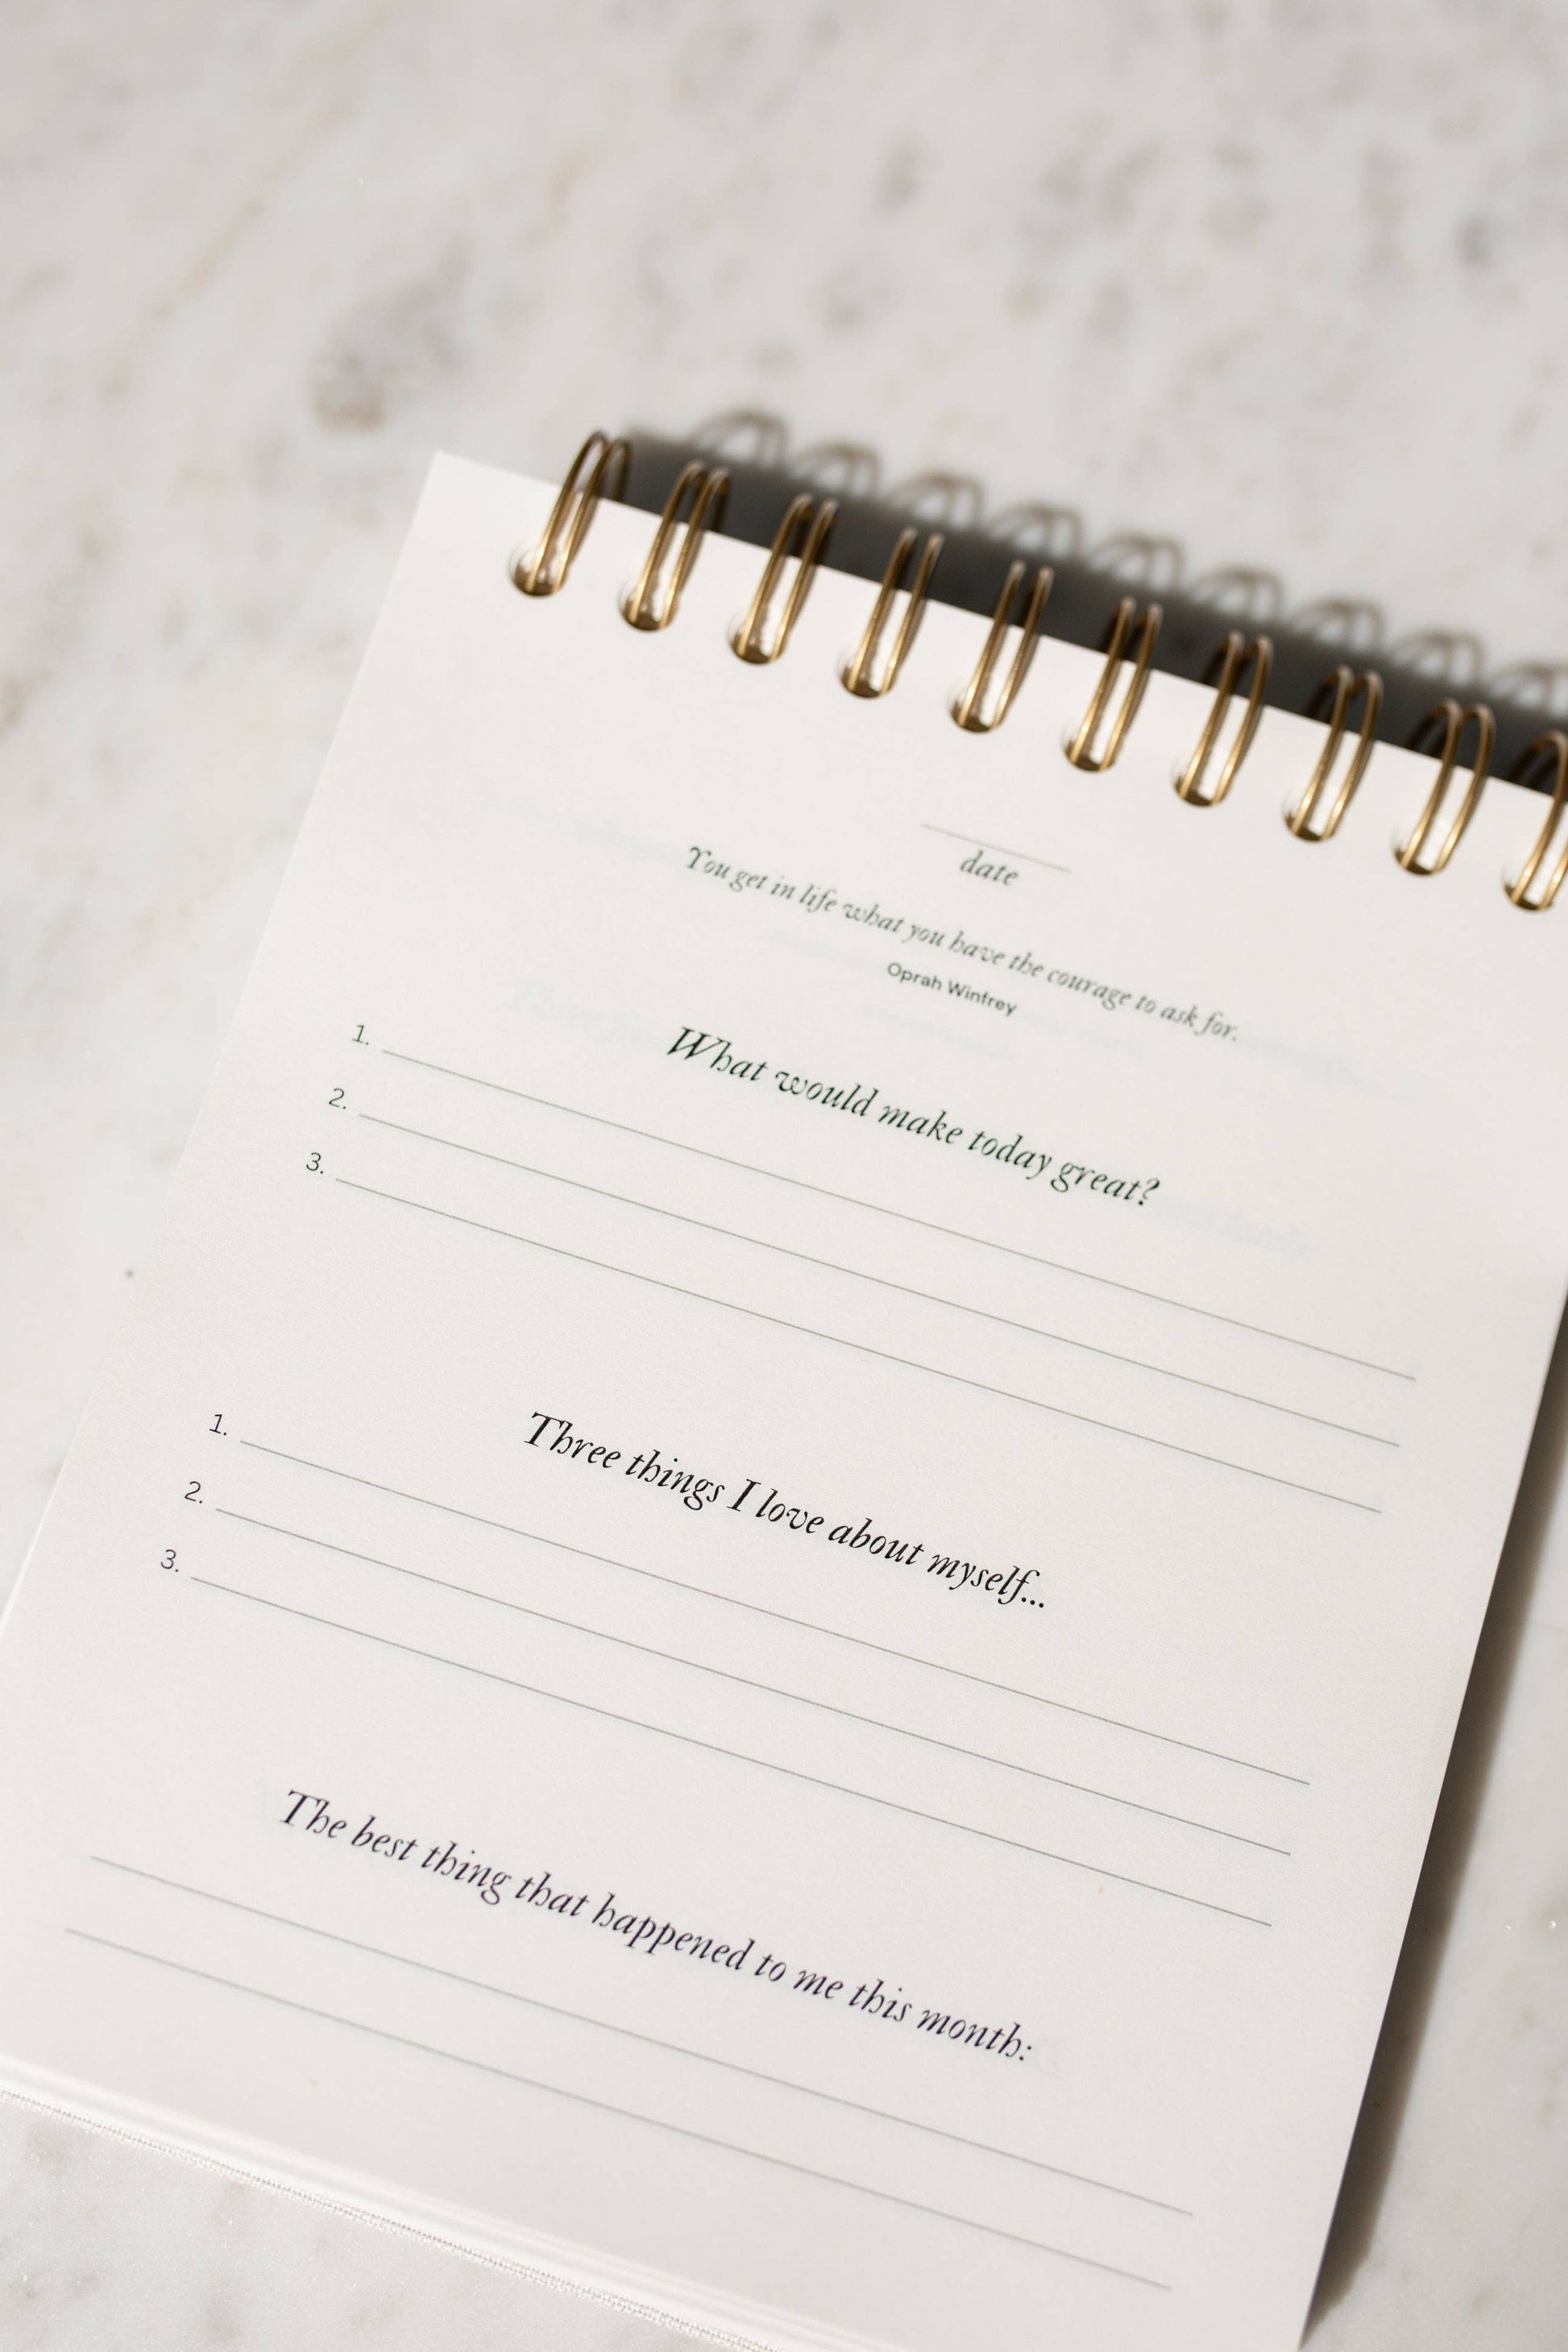 date
You get in life what you have the courage to ask for.
Oprah Winfrey
What would make today great?
1.
2.
3.
Three things I love about myself...
1.
2.
3.
The best thing that happened to me this month: